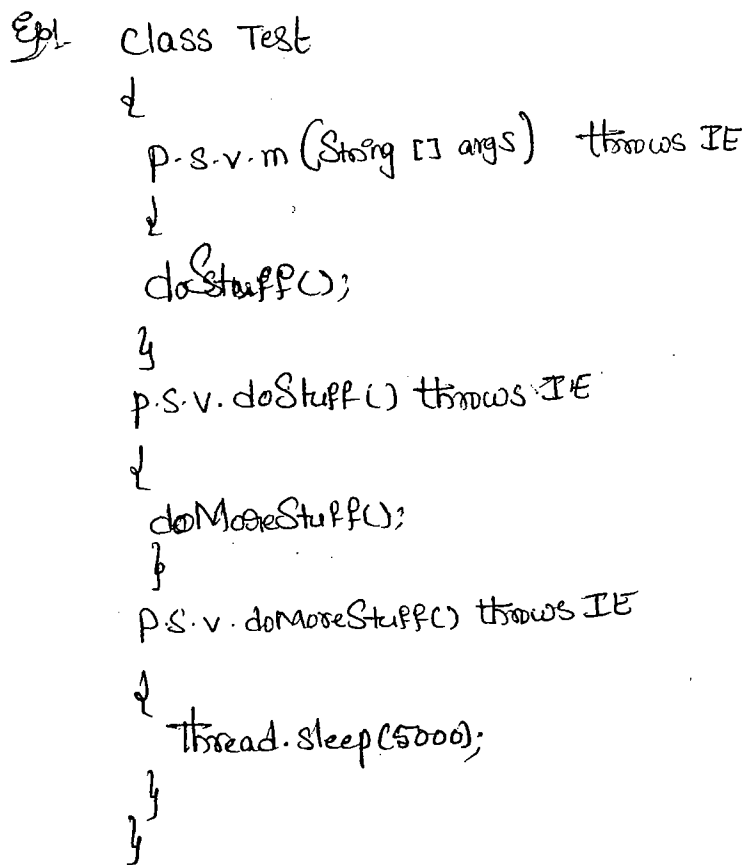 Ex:1 class Test
{
p.s.v.m (String [] args) throws IE
{
doStuff();
}
p.s.v. doStuff() throws IE
{
doMoreStuff();
}
p.s.v. doMoreStuff() throws IE
{
Thread.sleep(5000);
}
}